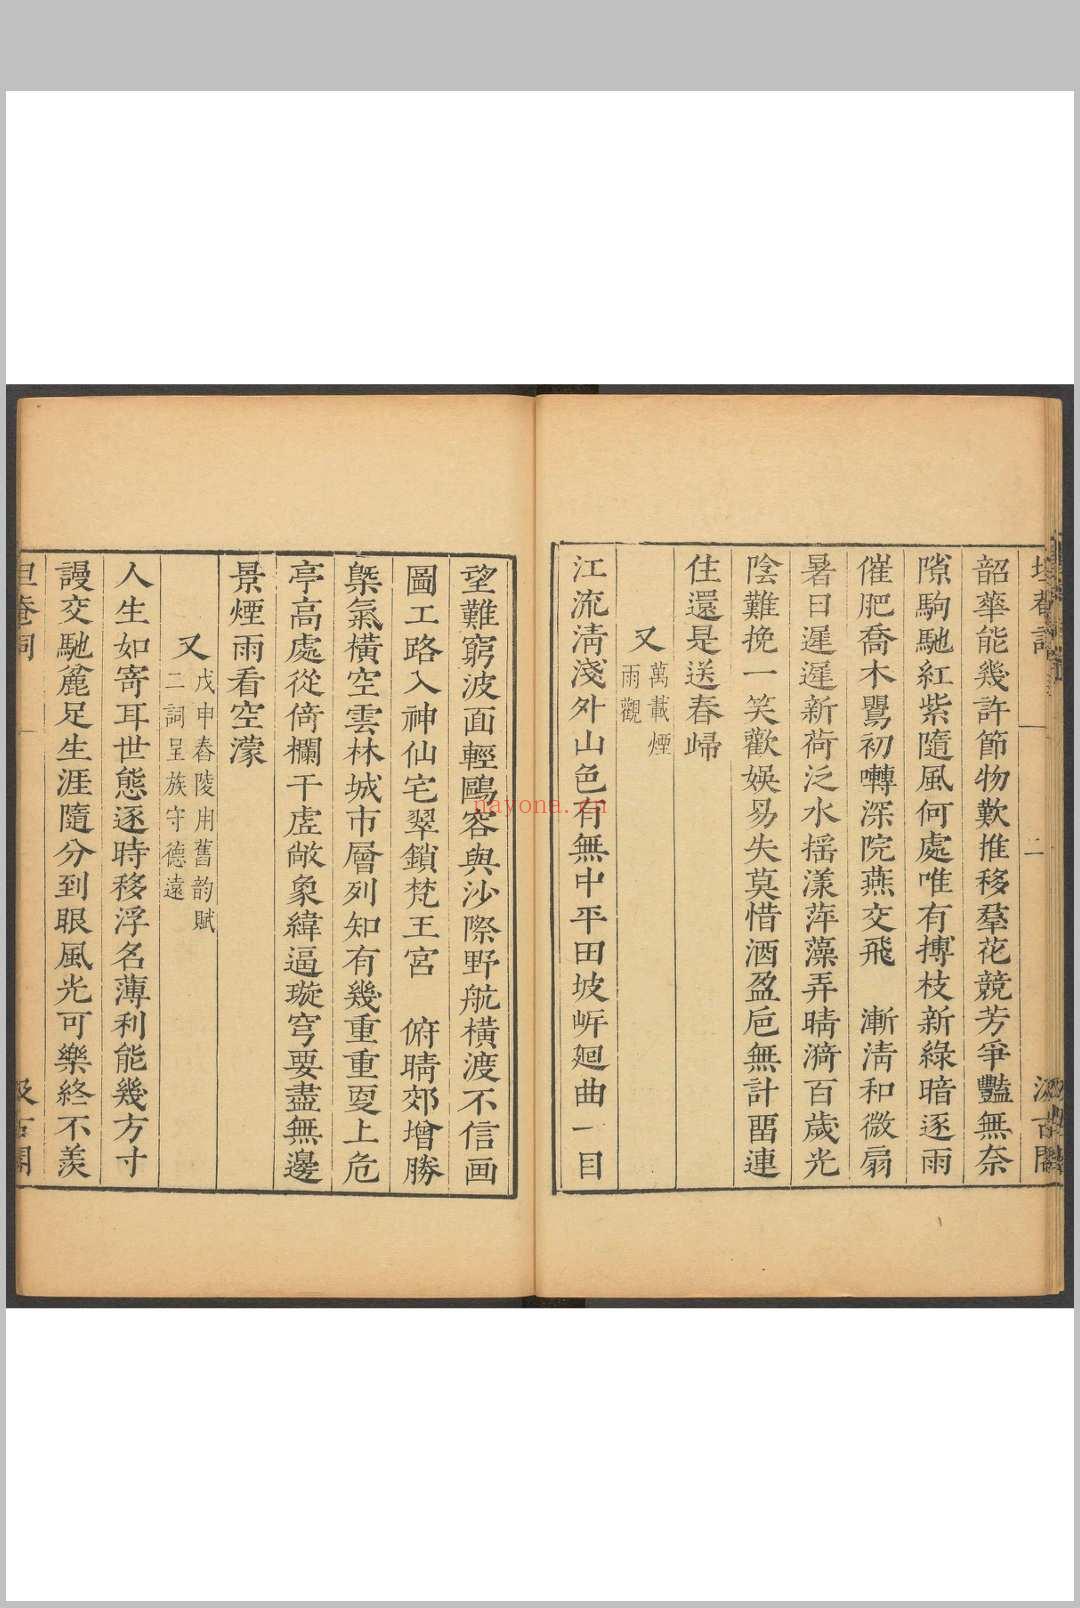 韶華能幾許節物歎推移羣花競芳爭豔無奈
隙駒馳紅紫隨風何處唯有摶枝新綠暗逐雨
催肥喬木鸎初囀深院燕交飛　漸淸和微扇
暑日遲遲新荷泛水搖漾萍藻弄晴漪百歲光
陰難挽一笑歡娛易失莫惜酒盈巵無計留連
住還是送春歸
又萬載煙
雨觀
江流淸淺外山色有無中平田坡岸廻曲一目
望難窮波面輕鷗容與沙際野航橫渡不信画
圖工路入神仙宅翠鎖梵王宮　俯晴郊增勝
槩氣橫空雲林城市層列知有幾重重更上危
亭高處從倚欄干虛敞象緯逼璇穹要盡無邊
景煙雨看空濛
又戊申春陵用舊韵賦
二詞呈族守德遠
人生如寄耳世態逐時移浮名薄利能幾方寸
謾交馳麤足生涯隨分到眼風光可樂終不羨
坦菴詞
汲古閣
nayona.cn